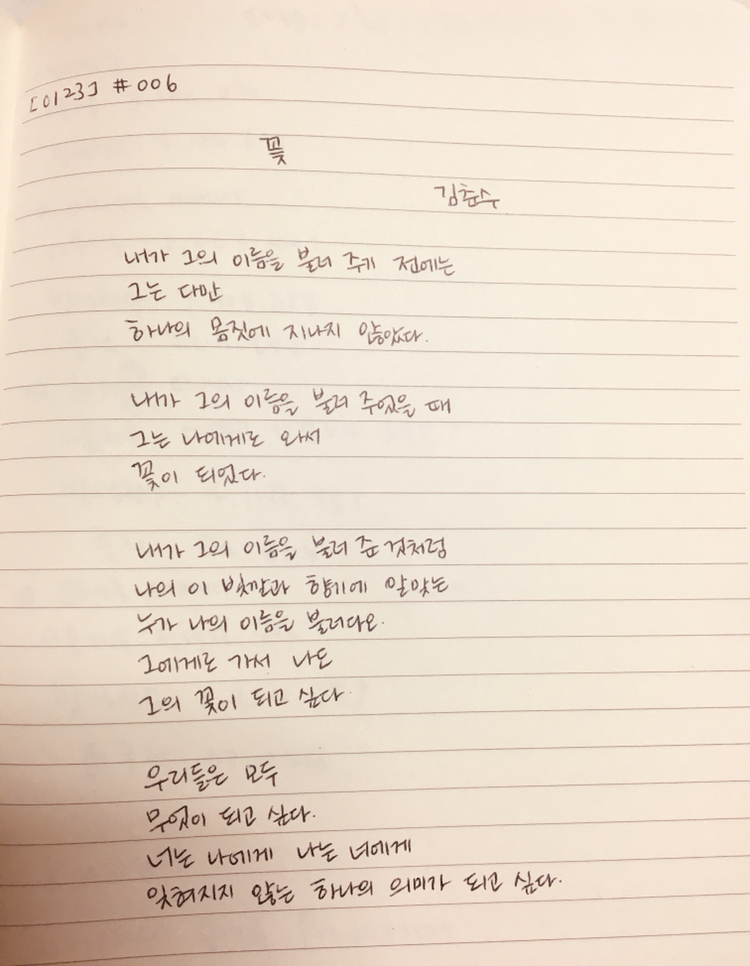 [0123] #006
꽃
김춘수
내가 그의 이름을 불러 주기 전에는
그는 다만
하나의 몸짓에 지나지 않았다.
내가 그의 이름을 불러 주었을 때
그는 나에게로 와서
꽃이 되었다.
내가 그의 이름을 불러 준 것처럼
나의 이 빛깔과 향기에 알맞는
누가 나의 이름을 불러다오.
그에게로 가서 나도
그의 꽃이 되고 싶다.
우리들은 모두
무엇이 되고 싶다.
너는 나에게 나는 너에게
잊혀지지 않는 하나의 의미가 되고 싶다.